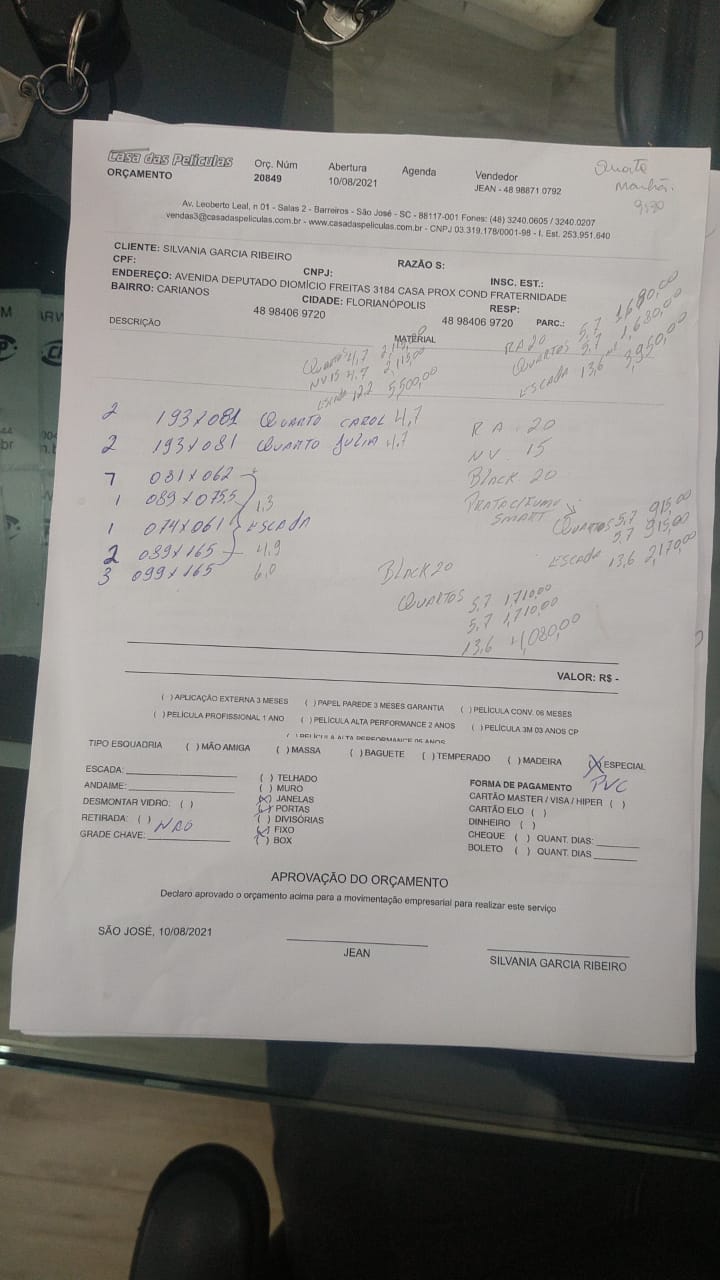 Casa das Películas
ORÇAMENTO
Orç. Núm
20849
Abertura
10/08/2021
Agenda
Vendedor
JEAN - 48 98871 0792
Quarta
Manhã
9:30
Av. Leoberto Leal, n 01 - Salas 2 - Barreiros - São José - SC - 88117-001 Fones: (48) 3240.0605 / 3240.0207
vendas3@casadaspeliculas.com.br - www.casadaspeliculas.com.br - CNPJ 03.319.178/0001-98 - I. Est. 253.951.640
CLIENTE: SILVANIA GARCIA RIBEIRO RAZÃO S:
CPF: CNPJ: INSC. EST.:
ENDEREÇO: AVENIDA DEPUTADO DIOMÍCIO FREITAS 3184 CASA PROX COND FRATERNIDADE
BAIRRO: CARIANOS CIDADE: FLORIANÓPOLIS RESP:
48 98406 9720 48 98406 9720 PARC.:
DESCRIÇÃO MATERIAL
RA20 5,7 1680,00
QUARTOS 5,7 1,680,00
ESCADA 13,6 3,950,00
QUARTOS 4,7 2,115,00
NV15 4,7 2,115,00
ESCADA 12,2 5,500,00
2 193X081 QUARTO CAROL 4,7
2 193X081 QUARTO JULIA 4,7
7 081X062
1 089X075,5 1,3
1 074X061 ESCADA
2 089X165 4,9
3 099X165 6,0
RA 20
NV. 15
BLACK 20
SMART
QUARTOS 5,7 915,00
5,7 915,00
ESCADA 13,6 2,170,00
BLACK 20
QUARTOS 5,7 1,710,00
5,7 1,710,00
13,6 4,080,00
VALOR: R$ -
( ) APLICAÇÃO EXTERNA 3 MESES ( ) PAPEL PAREDE 3 MESES GARANTIA ( ) PELÍCULA CONV. 06 MESES
( ) PELÍCULA PROFISSIONAL 1 ANO ( ) PELÍCULA ALTA PERFORMANCE 2 ANOS ( ) PELÍCULA 3M 03 ANOS CP
( ) PELÍCULA ALTA PERFORMANCE 05 ANOS
TIPO ESQUADRIA ( ) MÃO AMIGA ( ) MASSA ( ) BAGUETE ( ) TEMPERADO ( ) MADEIRA (X) ESPECIAL
PVC
ESCADA:
ANDAIME:
DESMONTAR VIDRO: ( )
RETIRADA: ( ) NÃO
GRADE CHAVE:
( ) TELHADO
( ) MURO
(X) JANELAS
(X) PORTAS
( ) DIVISÓRIAS
(X) FIXO
( ) BOX
FORMA DE PAGAMENTO
CARTÃO MASTER / VISA / HIPER ( )
CARTÃO ELO ( )
DINHEIRO ( )
CHEQUE ( ) QUANT. DIAS:
BOLETO ( ) QUANT. DIAS
APROVAÇÃO DO ORÇAMENTO
Declaro aprovado o orçamento acima para a movimentação empresarial para realizar este serviço
SÃO JOSÉ, 10/08/2021
JEAN
SILVANIA GARCIA RIBEIRO